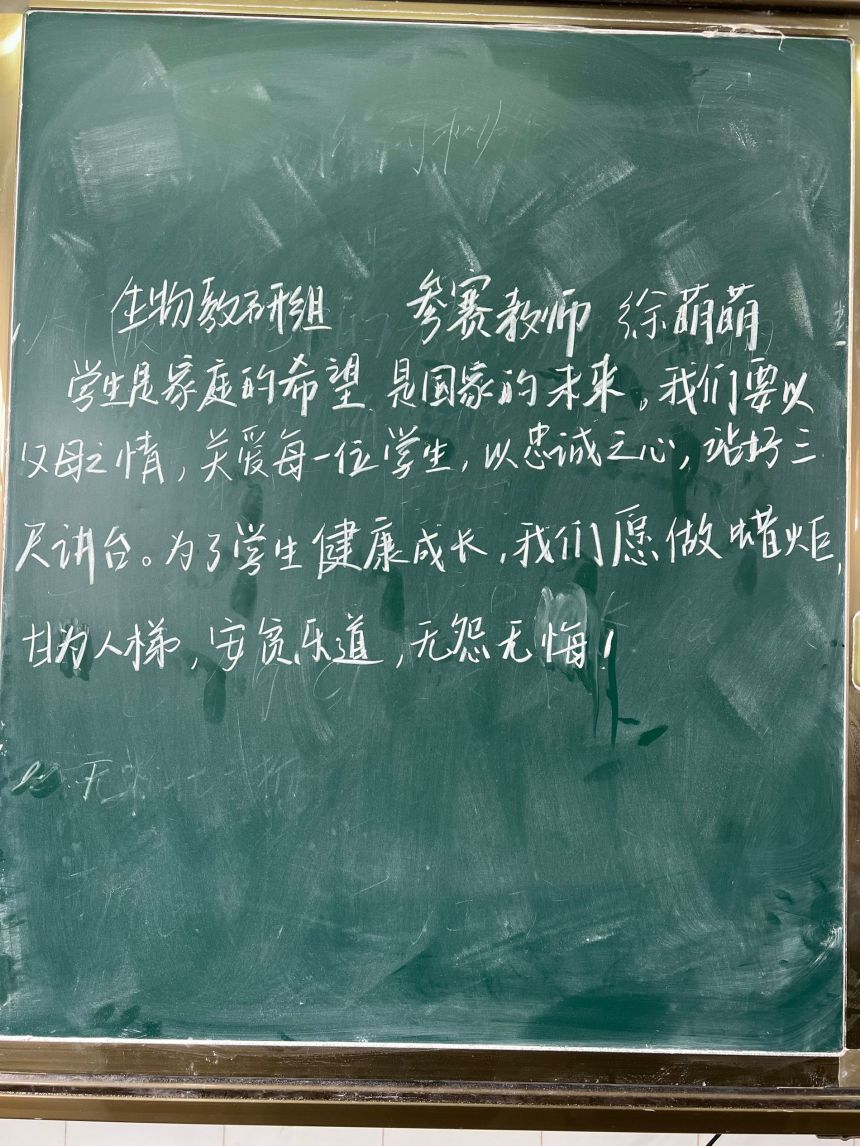 生物教研组 参赛教师 徐萌萌
学生是家庭的希望,是国家的未来。我们要以
父母之情,关爱每一位学生,以忠诚之心,站好三
尺讲台。为了学生健康成长,我们愿做蜡炬,
甘为人梯,安贫乐道,无怨无悔!